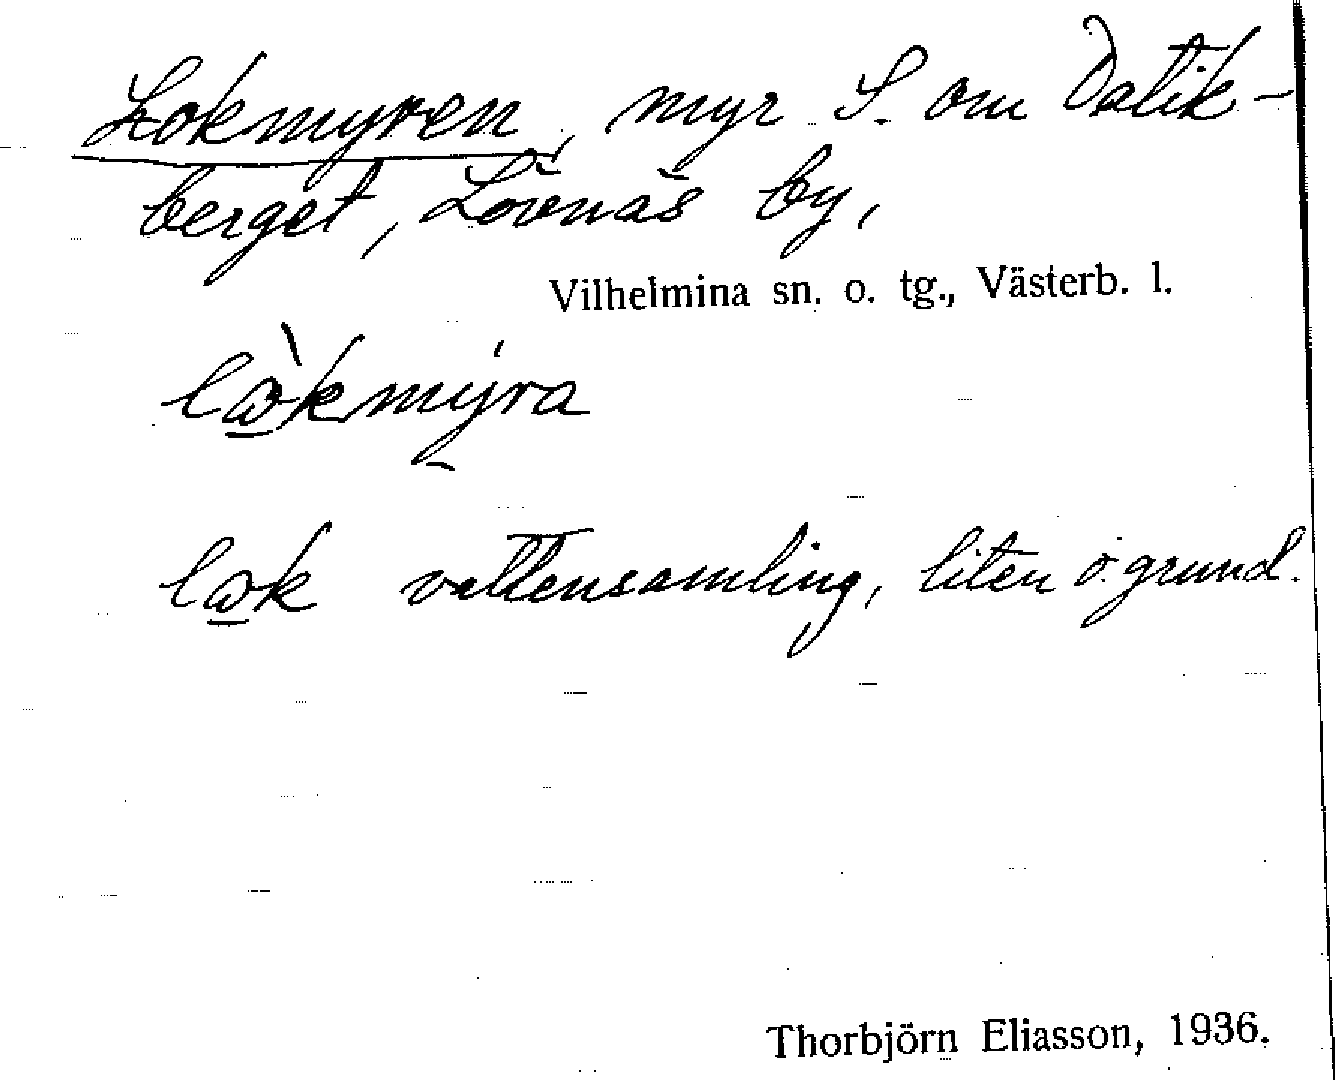 Lokmyren, myr S. om Datik-
berget, Lövnäs by,
Vilhelmina sn. o. tg., Västerb. l.
lòkmýra
lok vattensamling, liten o grund.
Thorbjörn Eliasson, 1936.